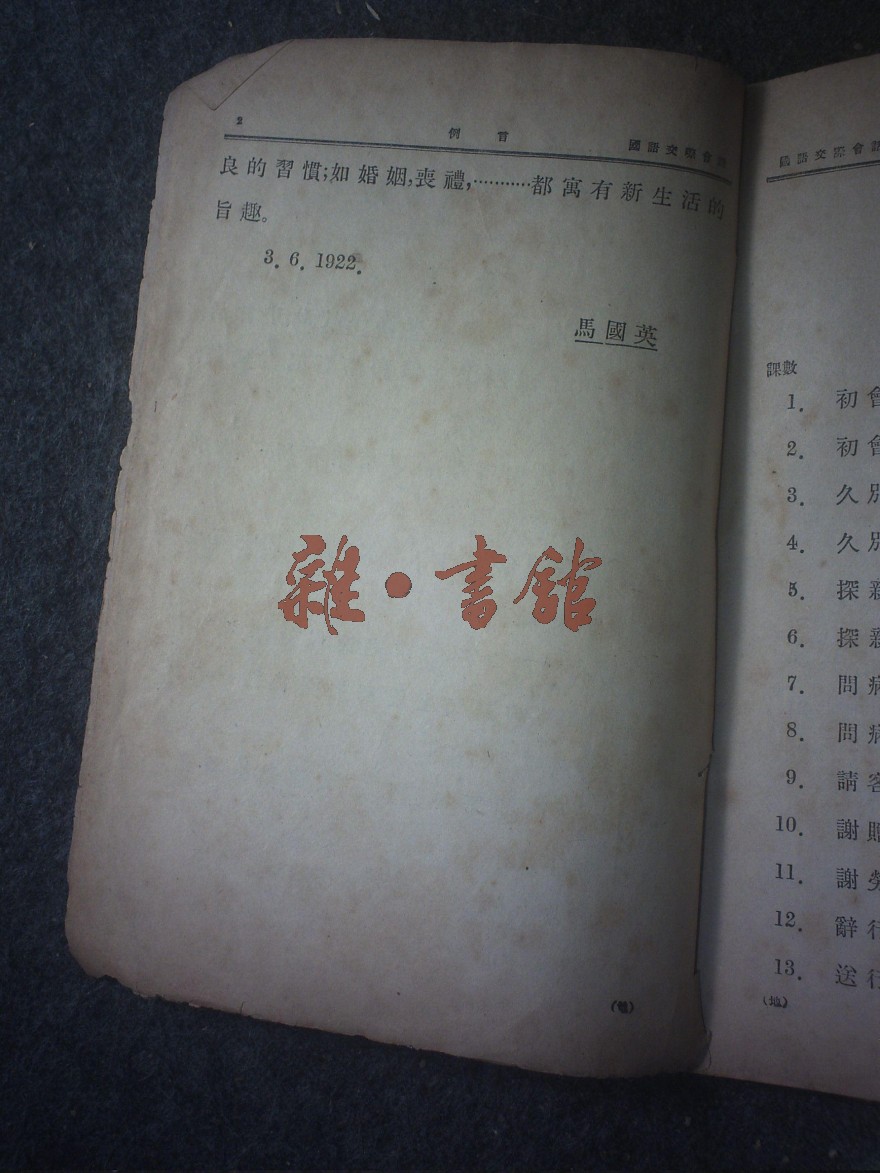 2 例言 國語交際會話
良的習慣;如婚姻,喪禮,…………都寓有新生活的
旨趣。
3. 6. 1922.
馬國英
雜·書館
國語交際會話
課數
1. 初會
2. 初會
3. 久別
4. 久別
5. 探
6. 探
7. 問病
8. 問病
9. 請客
10. 謝
11. 謝勞
12. 辭行
13. 送行
(地)